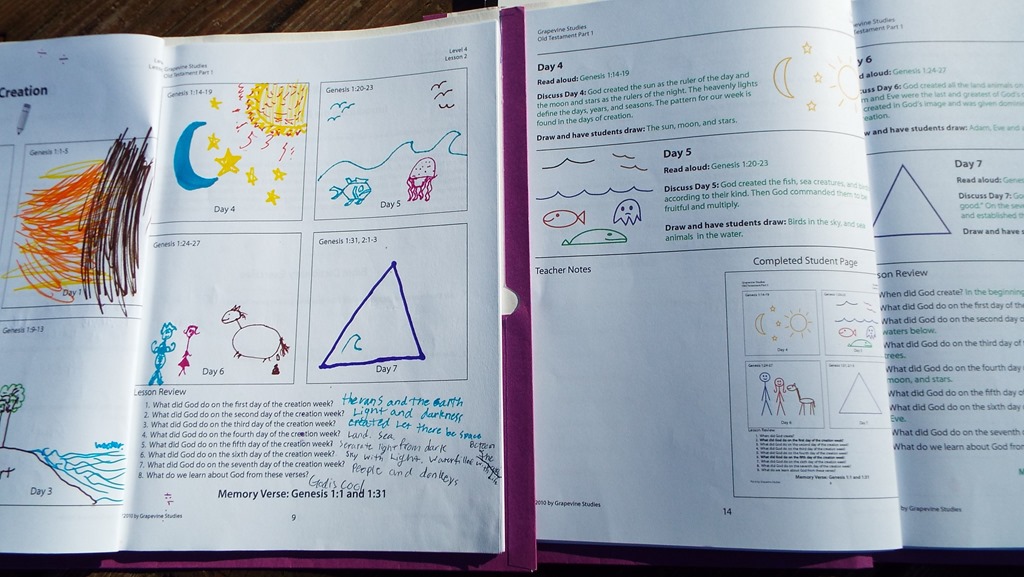 Creation
Genesis 1:1-5
Day 1
Genesis 1:9-13
water
Day 3
Grapevine Studies
Old Testament Part 1
Level 4
Lesson 2
Genesis 1:14-19
Day 4
Genesis 1:20-23
Day 5
Genesis 1:24-27
Day 6
Genesis 1:31, 2:1-3
Day 7
Lesson Review
1. What did God do on the first day of the creation week?
2. What did God do on the second day of the creation week?
3. What did God do on the third day of the creation week?
4. What did God do on the fourth day of the creation week?
5. What did God do on the fifth day of the creation week?
6. What did God do on the sixth day of the creation week?
7. What did God do on the seventh day of the creation week?
8. What do we learn about God from these verses?
hevans and the earth
Light and darkness
created Let there be space
Land. sea
light from dark
Sky with Light
People and donkeys
God is cool
Memory Verse: Genesis 1:1 and 1:31
2010 by Grapevine Studies
9
Grapevine Studies
Old Testament Part 1
Day 4
Read aloud: Genesis 1:14-19
Discuss Day 4: God created the sun as the ruler of the day and
the moon and stars as the rulers of the night. The heavenly lights
define the days, years, and seasons. The pattern for our week is
found in the days of creation.
Draw and have students draw: The sun, moon, and stars.
Day 5
Read aloud: Genesis 1:20-23
Discuss Day 5: God created the fish, sea creatures, and
according to their kind. Then God commanded them to be
fruitful and multiply.
Draw and have students draw: Birds in the sky, and sea
animals in the water.
Teacher Notes
Completed Student Page
Genesis 1:14-19
Day 4
Day 6
Day 7
Lesson Review
Memory Verse: Genesis 1:1 and 1:31
2010 by Grapevine Studies
14
Studies
Part 1
6
aloud: Genesis 1:24-27
6: God created all the land animals
and Eve were the last and greatest of God's
created in God's image and was given
have students draw: Adam, Eve and
Day 7
Read aloud:
Discuss Day 7:
good." On the
and established
Draw and have
Review
When did God create? In the beginning
What did God do on the first day of the
What did God do on the second day of
waters below.
What did God do on the third day of
trees.
What did God do on the fourth day of
moon, and stars.
What did God do on the fifth day of
What did God do on the sixth day
Eve.
What did God do on the seventh
What do we learn about God from
by Grapevine Studies